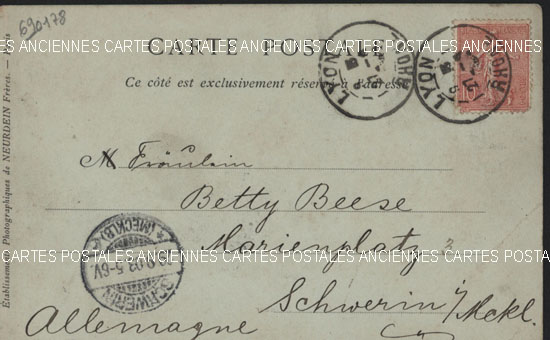 690178
CARTES POSTALES ANCIENNES CARTES POSTALES ANCIENNES CARTES POSTALES ANCIENNES
CARTE POSTALE
Ce côté est exclusivement réservé à l'adresse
LYON RHONE
LYON RHONE
10
M Fräulein
Betty Beese
Marienplatz 2
Schwerin i/Meckl.
Allemagne
SCHWERIN (MECKLB)
5-6V.
CARTES POSTALES ANCIENNES CARTES POSTALES ANCIENNES CARTES POSTALES ANCIENNES
Etablissements Photographiques de NEURDEIN Frères. — Paris